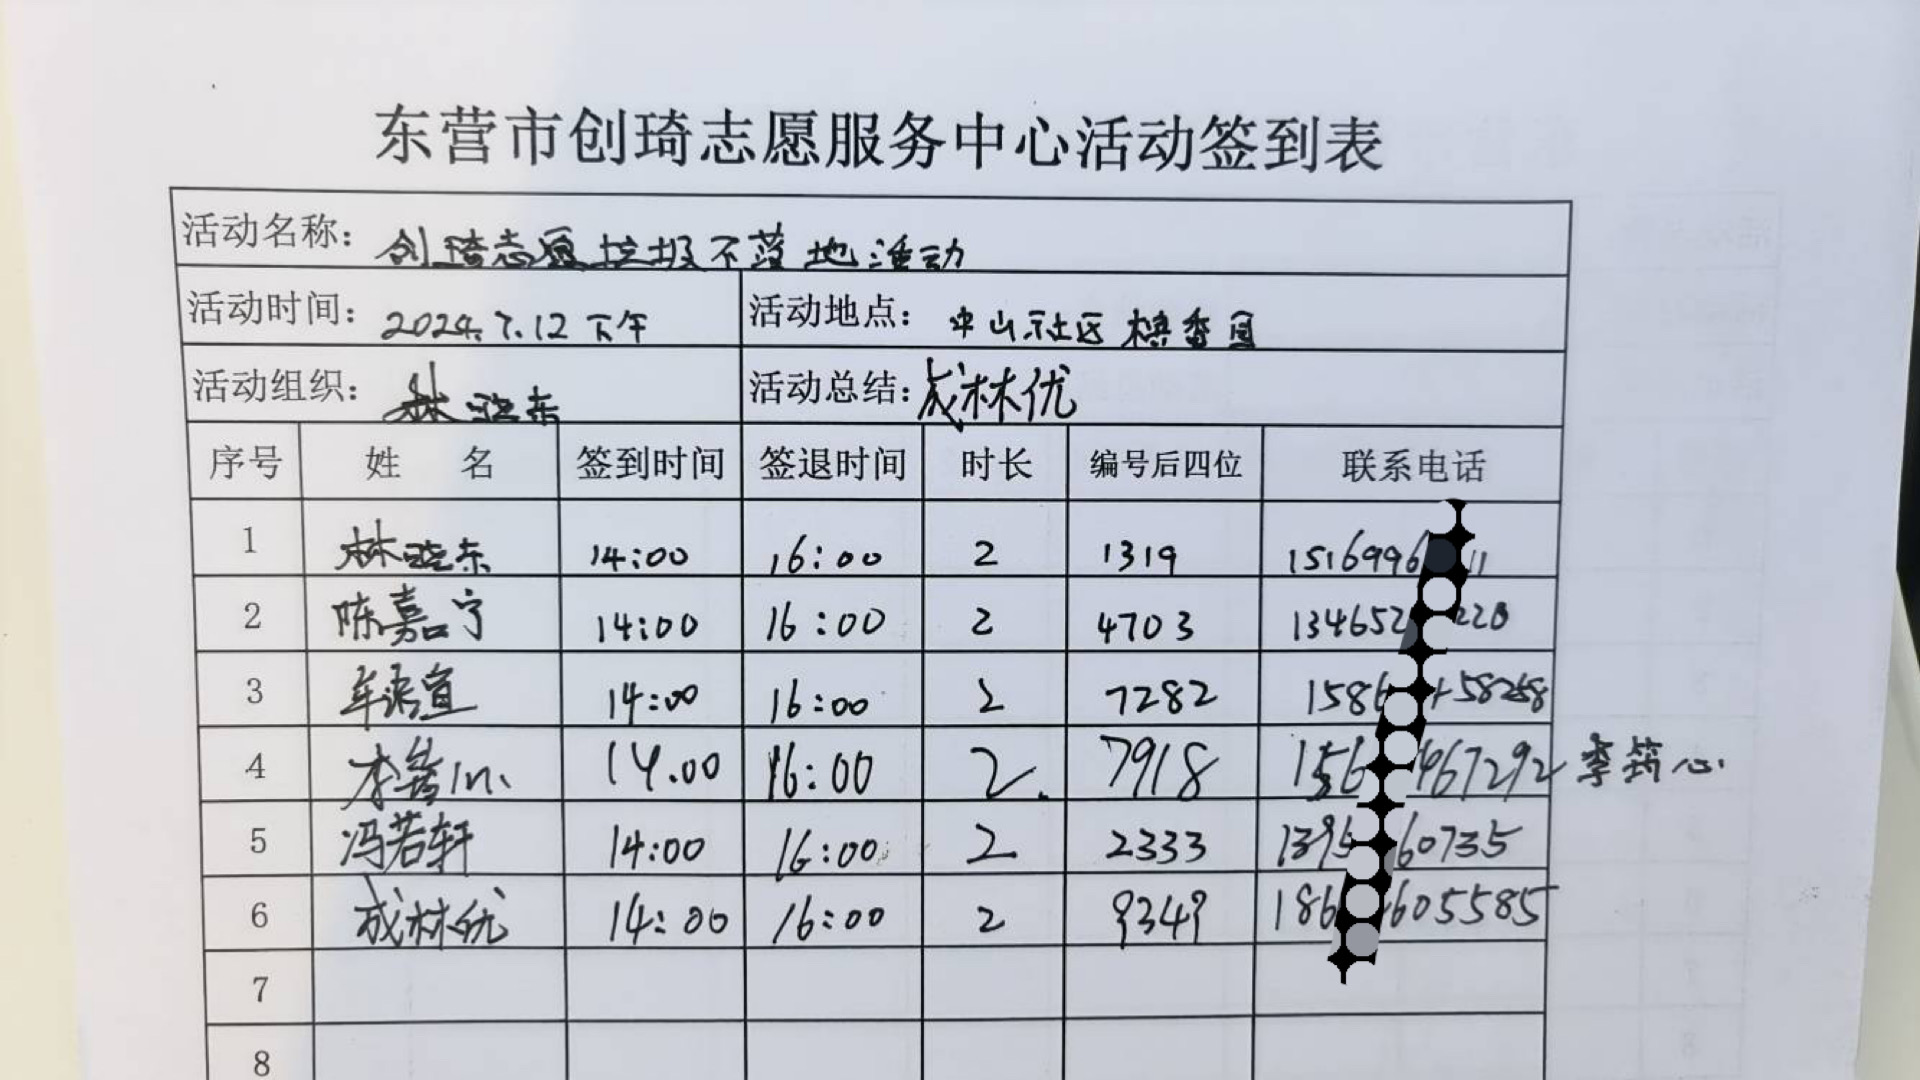 东营市创琦志愿服务中心活动签到表
活动名称：创琦志愿垃圾不落地活动
活动时间：2024.7.12下午 活动地点：中山社区槟香园
活动组织：林晓东 活动总结：成林优
序号 姓名 签到时间 签退时间 时长 编号后四位 联系电话
1 林晓东 14:00 16:00 2 1319 1516996 11
2 陈嘉宁 14:00 16:00 2 4703 134652 220
3 车语宣 14:00 16:00 2 7282 1586 58258
4 李筠心 14.00 16:00 2. 7918 156 467292 李筠心
5 冯若轩 14:00 16:00 2 2333 1395 60735
6 成林优 14:00 16:00 2 9349 186 605585
7
8